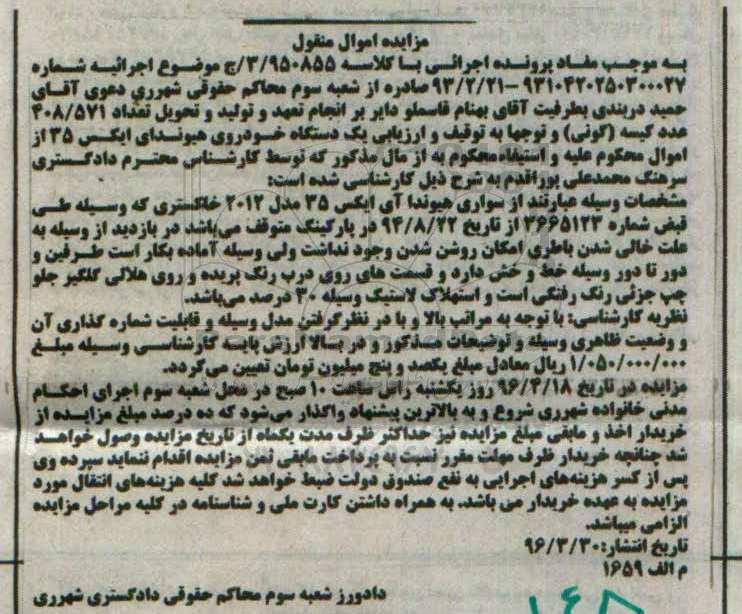 مزایده اموال منقول
به موجب مفاد پرونده اجرائی با کلاسه ۳/۹۵۰۸۵۵/ج موضوع اجرائیه شماره
۹۳۱۰۴۲۰۲۵۰۳۰۰۰۲۷ –۹۳/۲/۲۱ صادره از شعبه سوم محاکم حقوقی شهرری دعوی آقای
حمید دربندی بطرفیت آقای بهنام قاسملو دایر بر انجام تعهد و تولید و تحویل تعداد ۴۰۸/۵۷۱
عدد کیسه (گونی) و توجها به توقیف و ارزیابی یک دستگاه خودروی هیوندای ایکس ۳۵ از
اموال محکوم علیه و استیفاءمحکوم به از مال مذکور که توسط کارشناس محترم دادگستری
سرهنگ محمدعلی پوراقدم به شرح ذیل کارشناسی شده است:
مشخصات وسیله عبارتند از سواری هیوندا آی ایکس ۳۵ مدل ۲۰۱۲ خاکستری که وسیله طی
قبض شماره ۳۶۶۵۱۲۳ از تاریخ ۹۴/۸/۲۲ در پارکینگ متوقف می‌باشد در بازدید از وسیله به
علت خالی شدن باطری امکان روشن شدن وجود نداشت ولی وسیله آماده بکار است طرفین و
دور تا دور وسیله خط و خش دارد و قسمت های روی درب رنگ پریده و روی هلالی گلگیر جلو
چپ جزئی رنگ رفتگی است و استهلاک لاستیک وسیله ۳۰ درصد می‌باشد.
نظریه کارشناسی: با توجه به مراتب بالا و با در نظرگرفتن مدل وسیله و قابلیت شماره گذاری آن
و وضعیت ظاهری وسیله و توضیحات مذکور و در بالا ارزش پایه کارشناسی وسیله مبلغ
۱/۰۵۰/۰۰۰/۰۰۰ ریال معادل مبلغ یکصد و پنج میلیون تومان تعیین می‌گردد.
مزایده در تاریخ ۹۶/۴/۱۸ روز یکشنبه راس ساعت ۱۰ صبح در محل شعبه سوم اجرای احکام
مدنی خانواده شهرری شروع و به بالاترین پیشنهاد واگذار می‌شود که ده درصد مبلغ مزایده از
خریدار اخذ و مابقی مبلغ مزایده نیز حداکثر ظرف مدت یکماه از تاریخ مزایده وصول خواهد
شد چنانچه خریدار ظرف مهلت مقرر نسبت به پرداخت مابقی ثمن مزایده اقدام ننماید سپرده وی
پس از کسر هزینه‌های اجرایی به نفع صندوق دولت ضبط خواهد شد کلیه هزینه‌های انتقال مورد
مزایده به عهده خریدار می باشد. به همراه داشتن کارت ملی و شناسنامه در کلیه مراحل مزایده
الزامی میباشد.
تاریخ انتشار:۹۶/۳/۳۰
م الف ۱۶۵۹
دادورز شعبه سوم محاکم حقوقی دادگستری شهرری